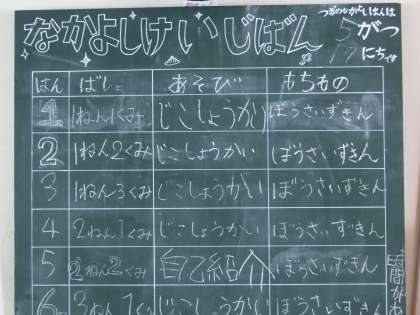 つぎのなかよしはんは
なかよしけいじばん 5がつ
17にちです
はん ばしょ あそび もちもの
1 1ねん1くみ じこしょうかい ぼうさいずきん
2 1ねん2くみ じこしょうかい ぼうさいずきん
3 1ねん3くみ じこしょうかい ぼうさいずきん
4 2ねん1くみ じこしょうかい ぼうさいずきん
5 2ねん2くみ 自己紹介 ぼうさいずきん
6 3ねん1くみ じこしょうかい ぼうさいずきん